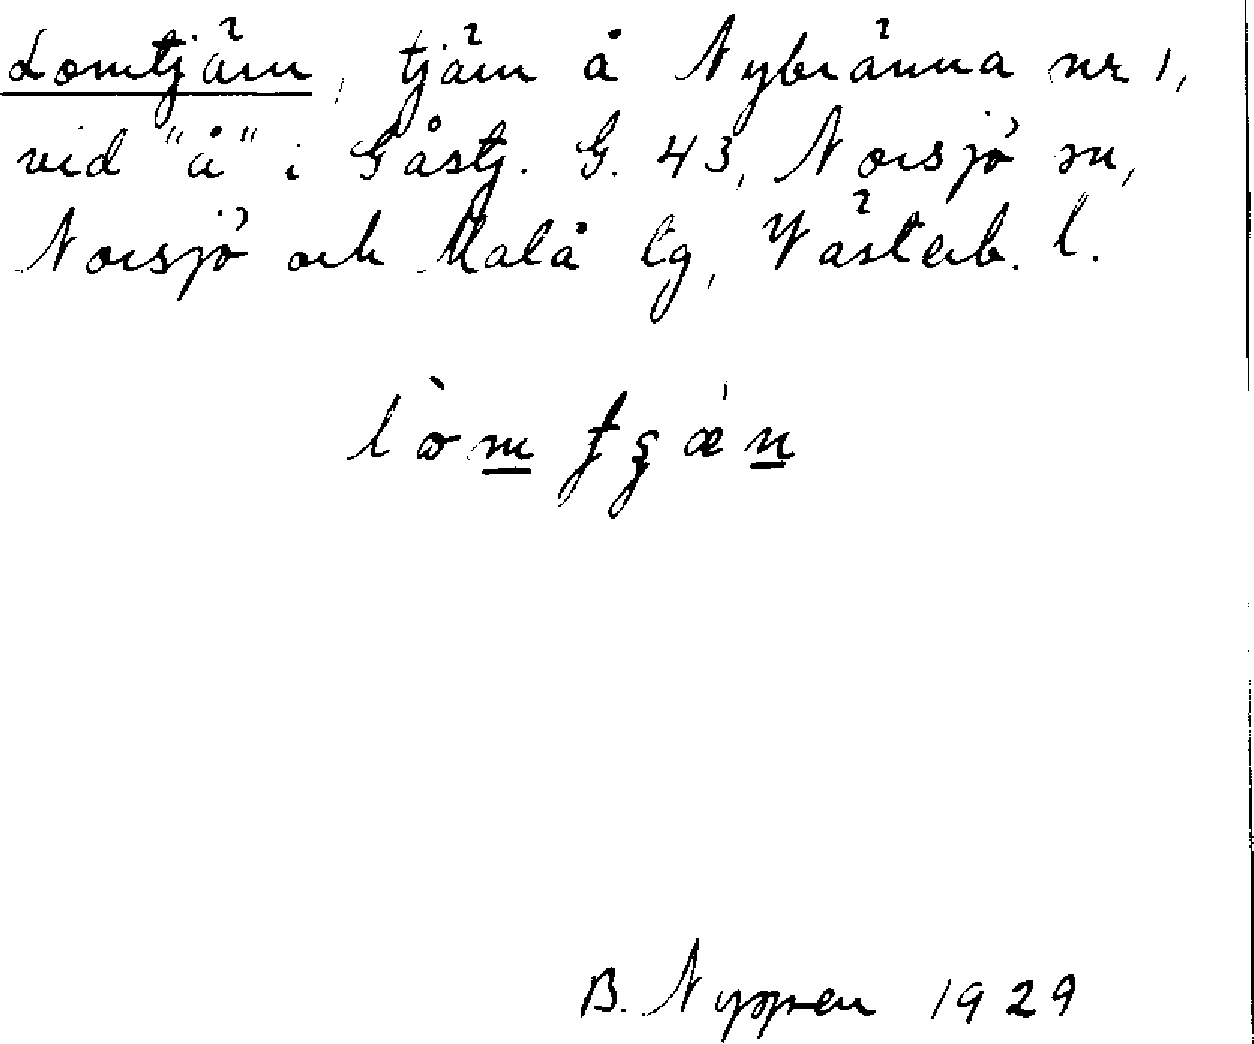 Lomtjärn, tjärn å Nybränna nr 1,
vid "å" i Gåstj. G. 43, Norsjö sn,
Norsjö och Malå tg, Västerb. l.
B. Nyppen 1929